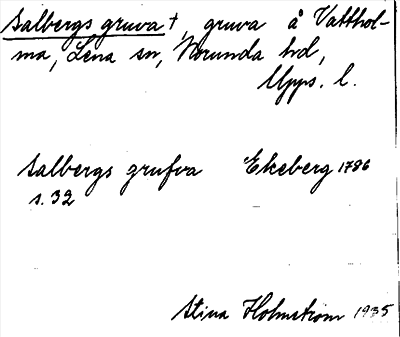 Salbergs gruva †, gruva å Vatthol-
ma, Lena sn, Norunda hd,
Upps. l.
Salbergs grufva Ekeberg 1786
s. 32
Stina Holmstrom 1935